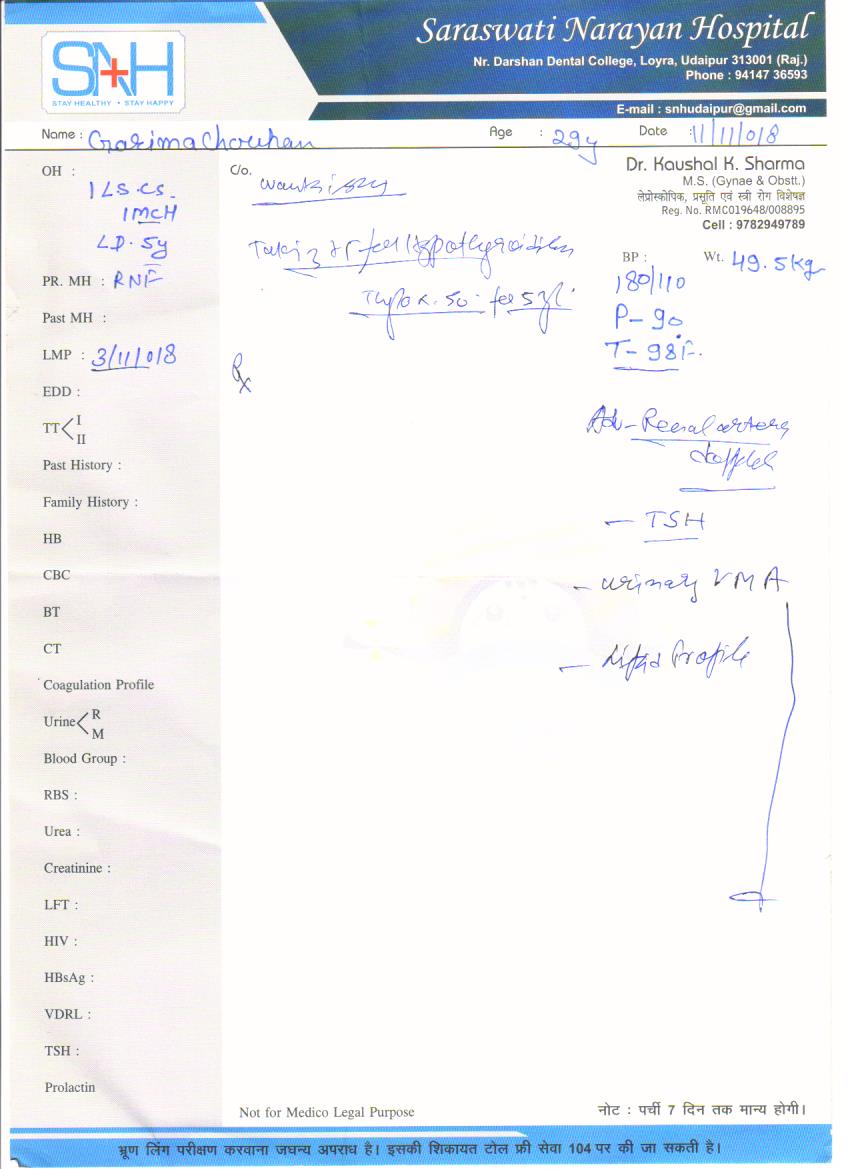 Saraswati Narayan Hospital
Nr. Darshan Dental College, Loyra, Udaipur 313001 (Raj.)
Phone : 94147 36593
SNH
STAY HEALTHY • STAY HAPPY
E-mail : snhudaipur@gmail.com
Name : Garima Chouhan Age : 29y Date : 11/11/018
Dr. Kaushal K. Sharma
M.S. (Gynae & Obstt.)
लेप्रोस्कोपिक, प्रसूति एवं स्त्री रोग विशेषज्ञ
Reg. No. RMC019648/008895
Cell : 9782949789
OH :
1 LSCS
1 MCH
L.D. 5y
C/o.
want issy
Taking tr for Hypothyroidism
Thyrox. 50. for 5 yr.
BP : 180/110
Wt. 49.5kg
P- 90
T- 98F.
PR. MH : RNF
Past MH :
LMP : 3/11/018
Rx
EDD :
TT I
II
Past History :
Family History :
HB
CBC
BT
CT
Coagulation Profile
Urine R
M
Blood Group :
RBS :
Urea :
Creatinine :
LFT :
HIV :
HBsAg :
VDRL :
TSH :
Prolactin
Adv- Renal artery
doppler
- TSH
- urinary VMA
- Lipid Profile
Not for Medico Legal Purpose
नोट : पर्ची 7 दिन तक मान्य होगी।
भ्रूण लिंग परीक्षण करवाना जघन्य अपराध है। इसकी शिकायत टोल फ्री सेवा 104 पर की जा सकती है।